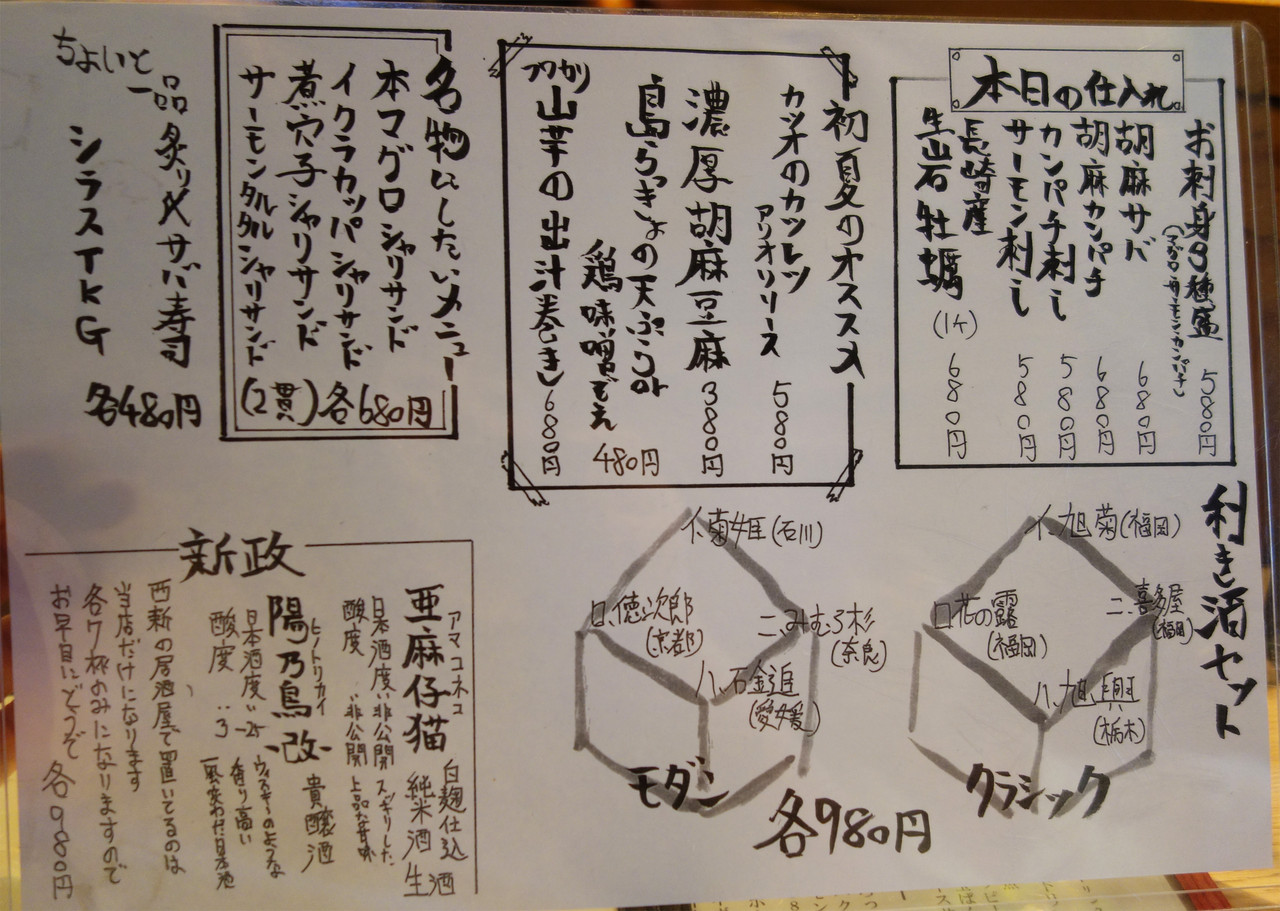 本日の仕入れ
お刺身3種盛 580円
(マグロ・サーモン・カンパチ)
胡麻サバ 680円
胡麻カンパチ 680円
カンパチ刺し 580円
サーモン刺し 580円
長崎産
生岩牡蠣 (1ケ) 680円
初夏のオススメ
カツオのカツレツ
アリオリソース 580円
濃厚胡麻豆腐 380円
島らっきょの天ぷら
鶏味噌ぞえ 480円
フワカリ
山芋の出汁巻き 680円
名物にしたいメニュー
本マグロシャリサンド
イクラカッパシャリサンド
煮穴子シャリサンド
サーモンタルタルシャリサンド
(2貫)各680円
ちょいと一品
炙り〆サバ寿司
シラスTKG
各480円
利き酒セット
イ、旭菊(福岡)
ロ、花の露
(福岡)
ニ、喜多屋
(福岡)
ハ、旭興
(栃木)
クラシック
イ、菊姫(石川)
ロ、徳次郎
(京都)
ニ、みむろ杉
(奈良)
ハ、石鎚
(愛媛)
モダン
各980円
新政
アマコネコ
亜麻仔猫
白麹仕込
純米酒
生酒
日本酒度:非公開
酸度:非公開
スッキリした
上品な甘味
ヒノトリカイ
陽乃鳥-改-
貴醸酒
日本酒度:-25
酸度:3
ウィスキーのような
香り高い
一風変わった日本酒
西新の居酒屋で置いてるのは
当店だけになります
各7杯のみになりますので
お早目にどうぞ 各980円